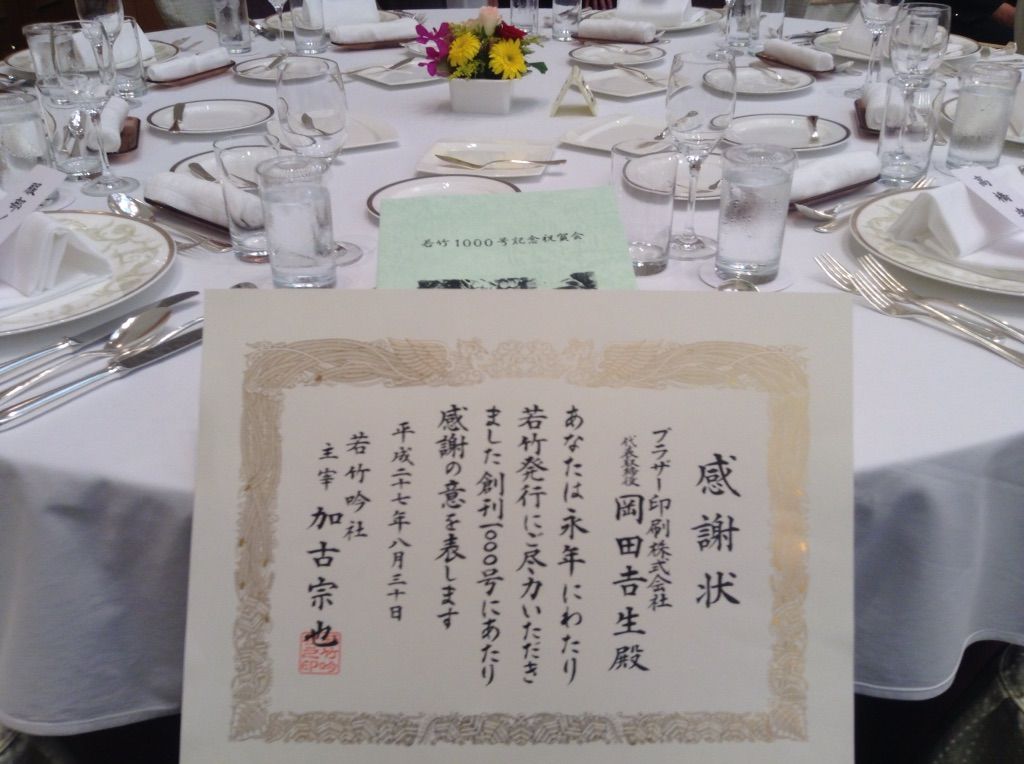 若竹1000号記念祝賀会
感謝状
ブラザー印刷株式会社
代表取締役 岡田𠮷生殿
あなたは永年にわたり
若竹発行にご尽力いただき
ました創刊一〇〇〇号にあたり
感謝の意を表します
平成二十七年八月三十日
若竹吟社
主宰 加古宗也
高橋